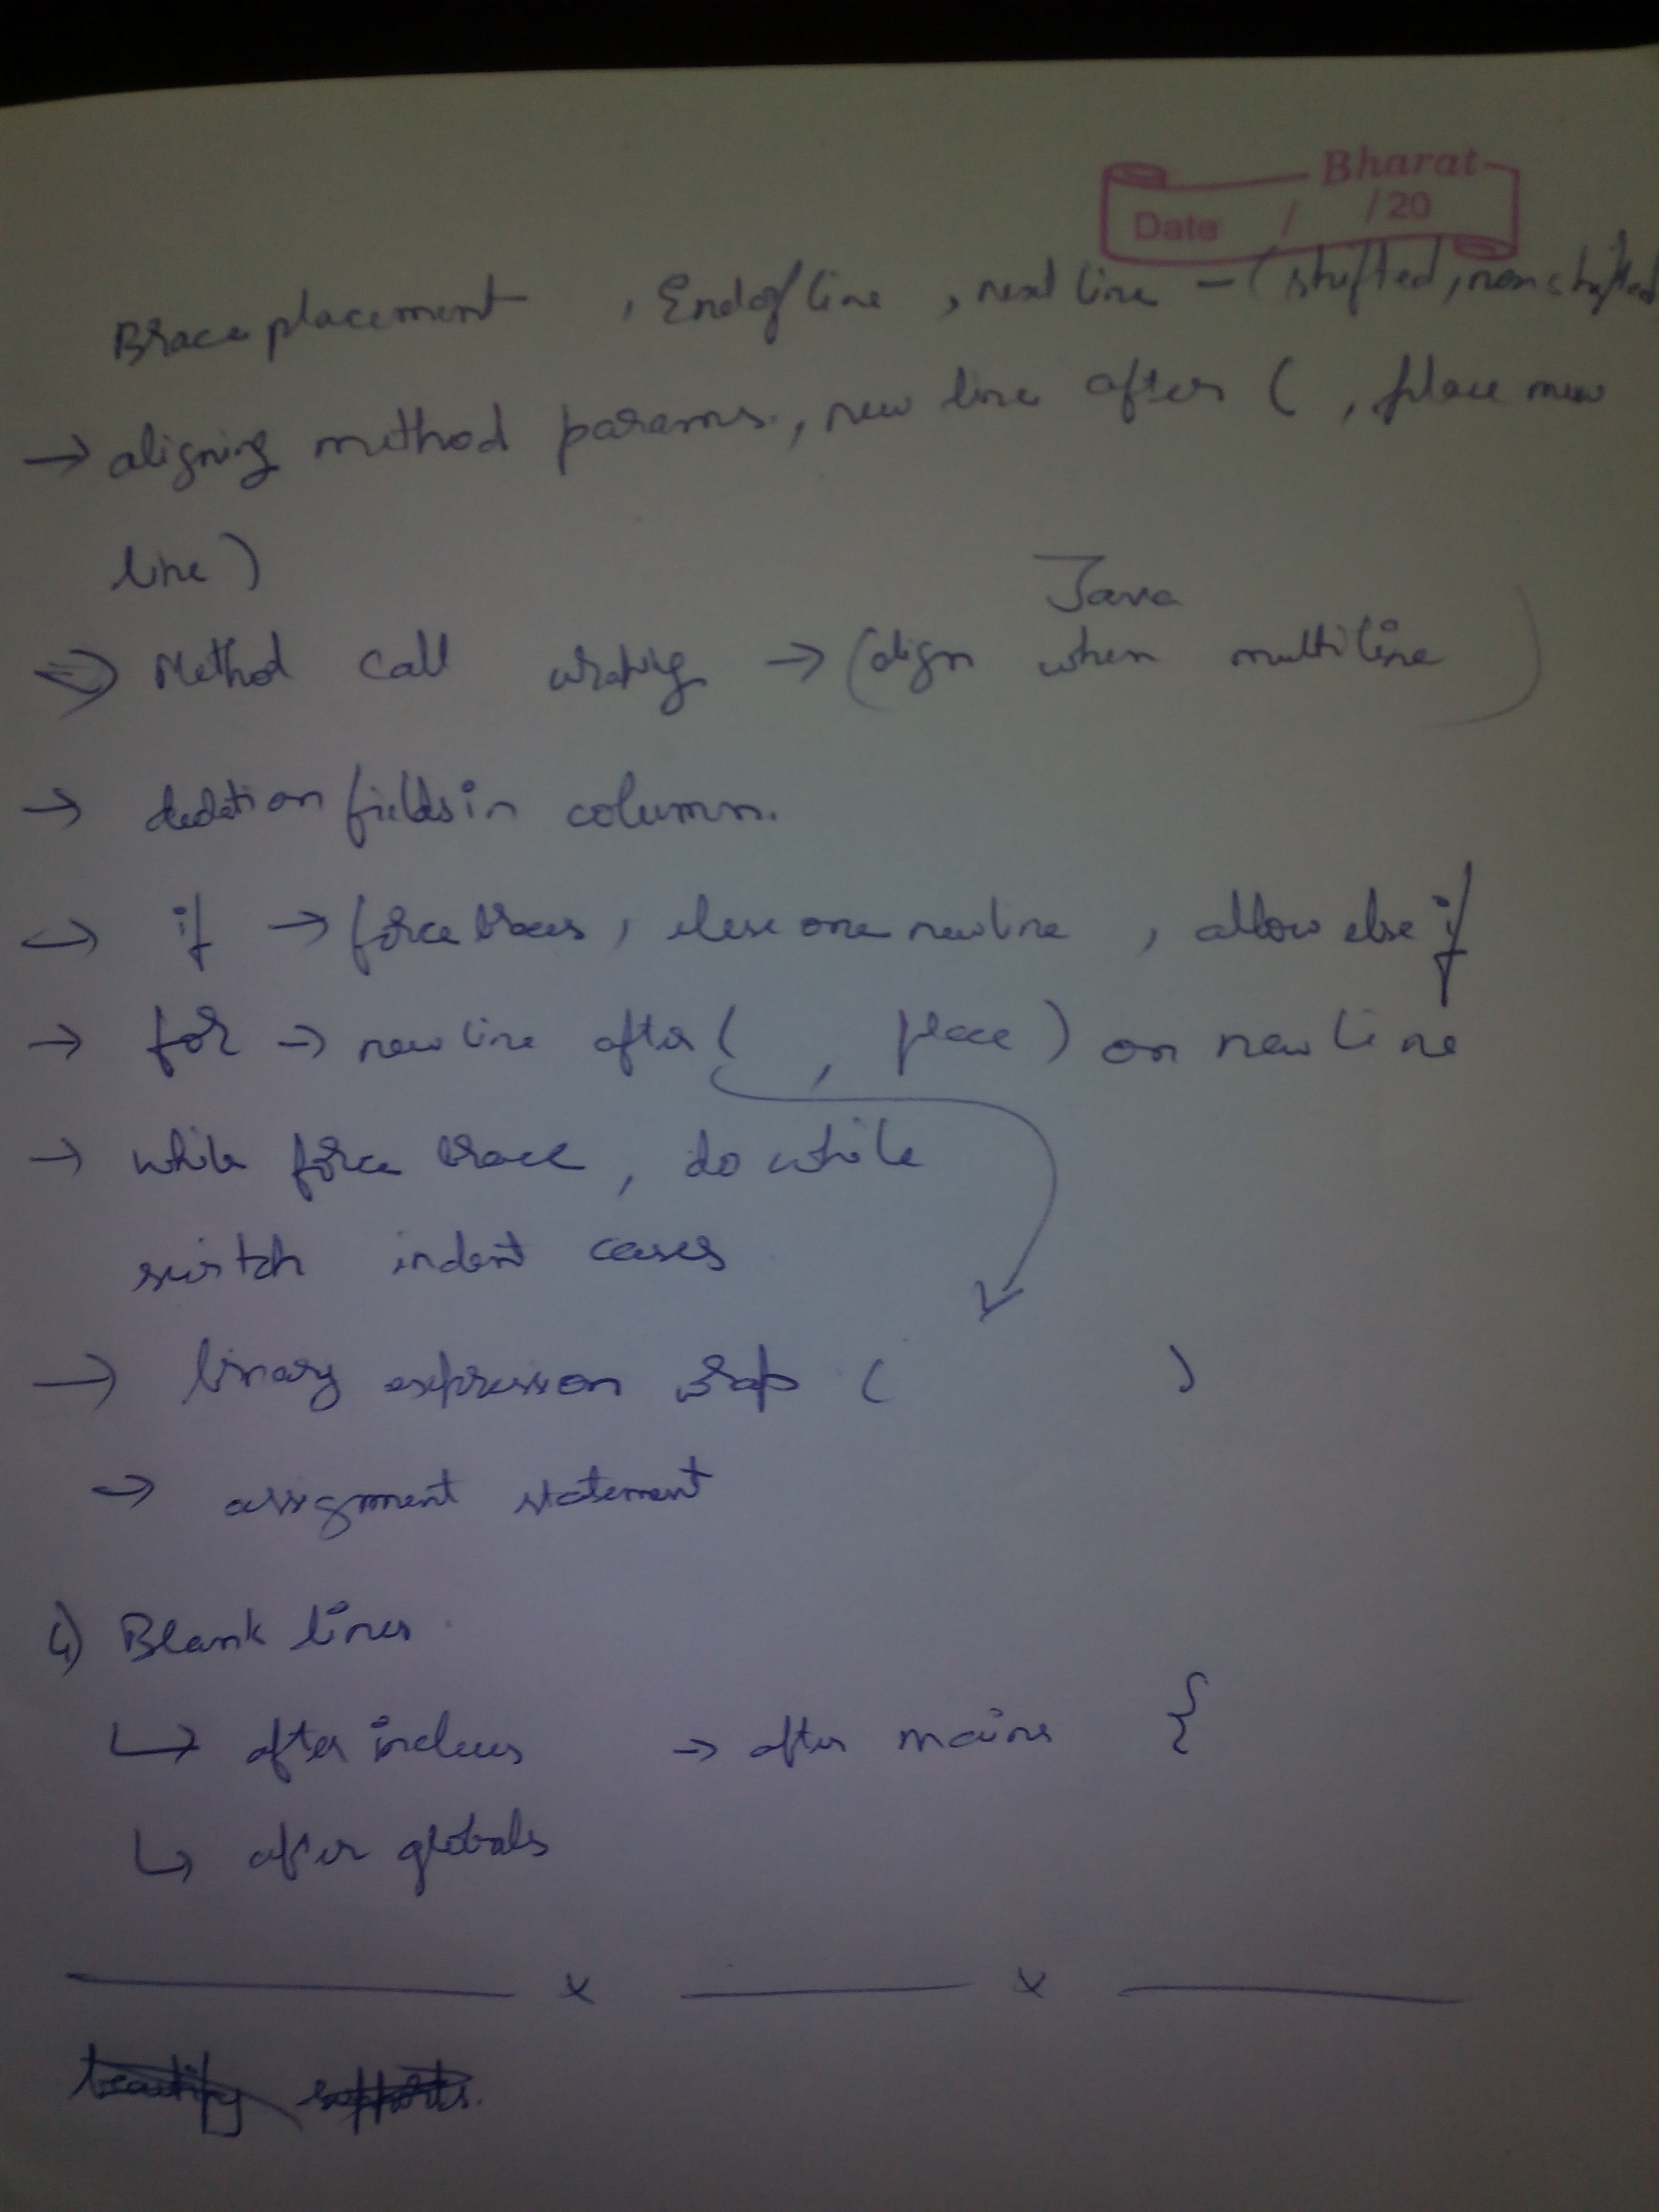 Bharat
Date / /20
Brace placement , End of line , next line - (shifted, non shifted
→ aligning method params., new line after ( , place new
line )
Java
⇒ Method call wraping → (align when multiline )
→ fields in column.
→ if → force braces, else one newline , allow else if
→ for → new line after ( , place ) on new line
→ while force brace , do while
switch indent cases
→ binary expression wrap ( )
→ assignment statement
4) Blank lines.
↳ after inclues → after mains {
↳ after globals
x x
beautify supports.